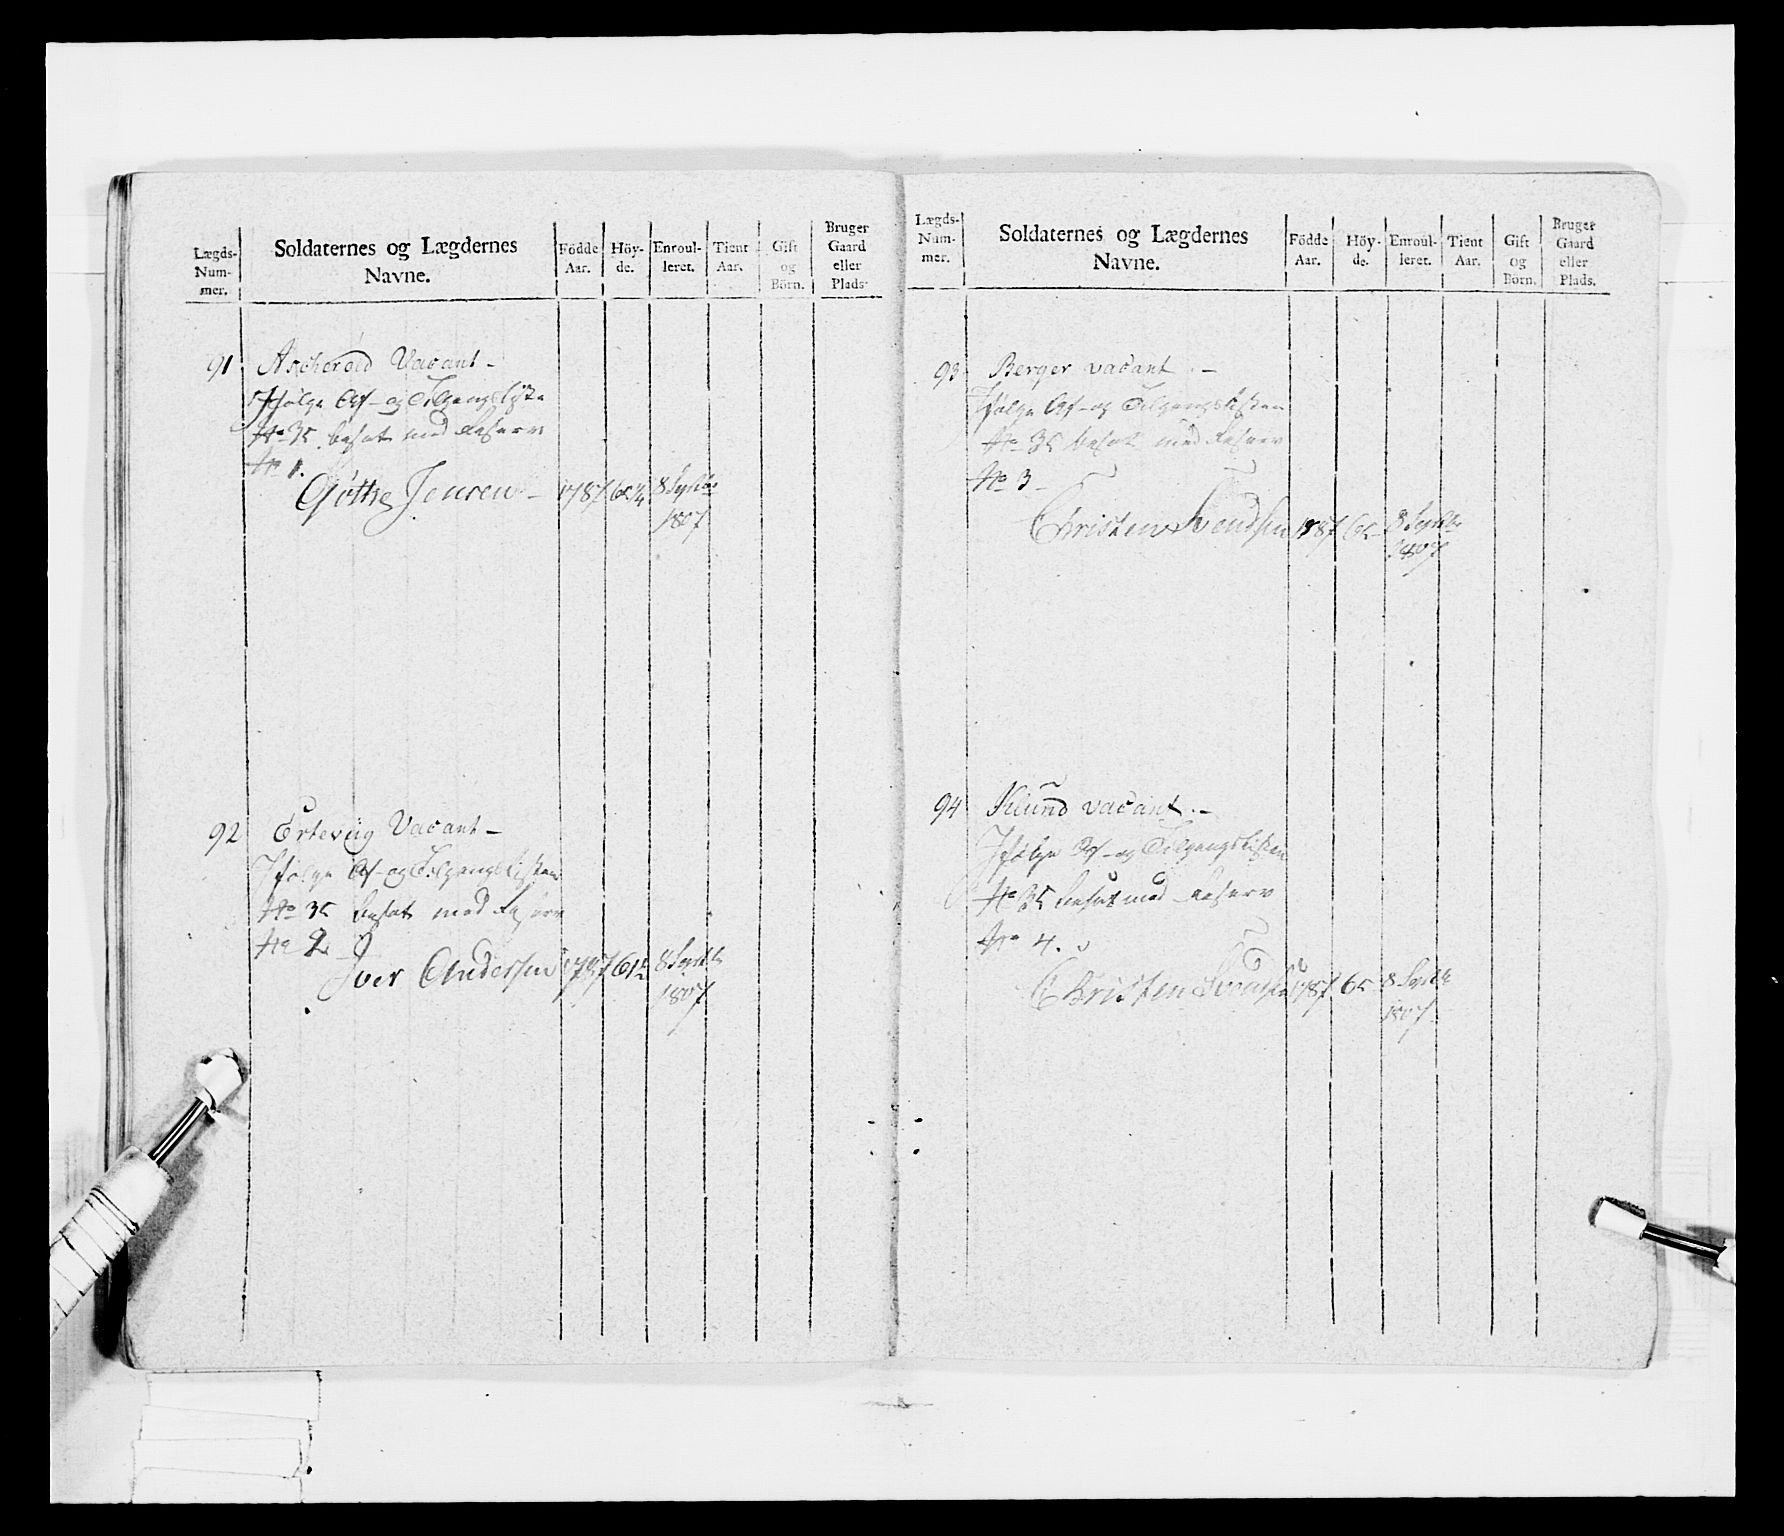 Lægds-
Num-
mer.
Soldaternes og Lægdernes
Navne.
Födde
Aar.
Höy-
de.
Enroul-
leret.
Tient
Aar.
Gift
og
Börn.
Bruger
Gaard
eller
Plads.
91. Vacant -
Ifølge Af- og Tilgangsliste
No 35 besat med Reserv
No 1.
Gøthe Jensen - 1787 8 Septbr
1807
92 Ertevüg Vacant -
Ifølge Af- og Tilgangslisten
No 35 besat med Reserv
No 2
Iver Andersen 1787 61½ 8 Septbr
1807
Lægds-
Num-
mer.
Soldaternes og Lægdernes
Navne.
Födde
Aar.
Höy-
de.
Enroul-
leret.
Tient
Aar.
Gift
og
Börn.
Bruger
Gaard
eller
Plads.
93. Berger vacant . -
Ifølge Af- og Tilgangslisten
No 35 besat med Reserv
No 3 -
Christen Svendsen 1787 8 Septbr
1807
94 vacant . -
Ifølge Af- og Tilgangslisten
No 35 besat med Reserv
No 4.
Christen 1787 8 Septbr
1807